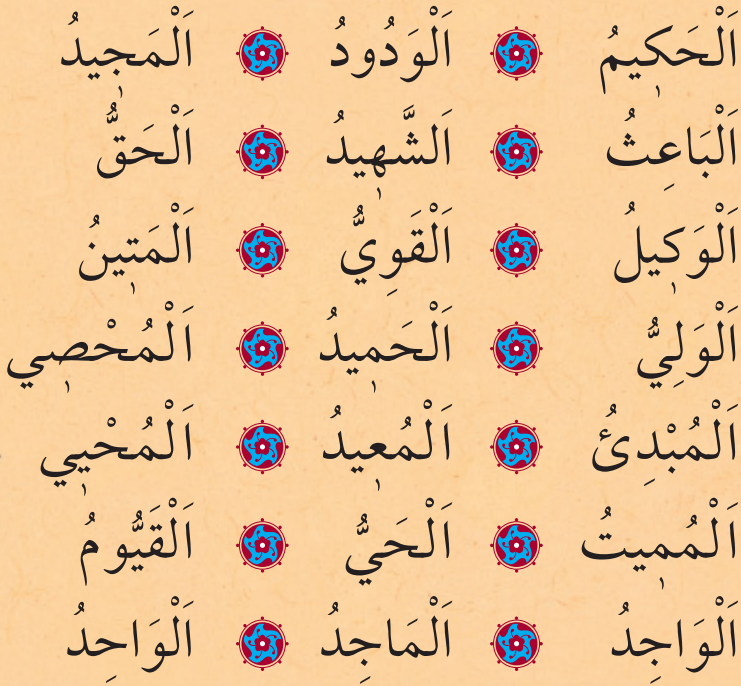 اَلْحَكٖيمُ اَلْوَدُودُ اَلْمَجٖيدُ
اَلْبَاعِثُ اَلشَّهٖيدُ اَلْحَقُّ
اَلْوَكٖيلُ اَلْقَوِيُّ اَلْمَتٖينُ
اَلْوَلِيُّ اَلْحَمٖيدُ اَلْمُحْصٖي
اَلْمُبْدِئُ اَلْمُعٖيدُ اَلْمُحْيٖي
اَلْمُمٖيتُ اَلْحَيُّ اَلْقَيُّومُ
اَلْوَاجِدُ اَلْمَاجِدُ اَلْوَاحِدُ